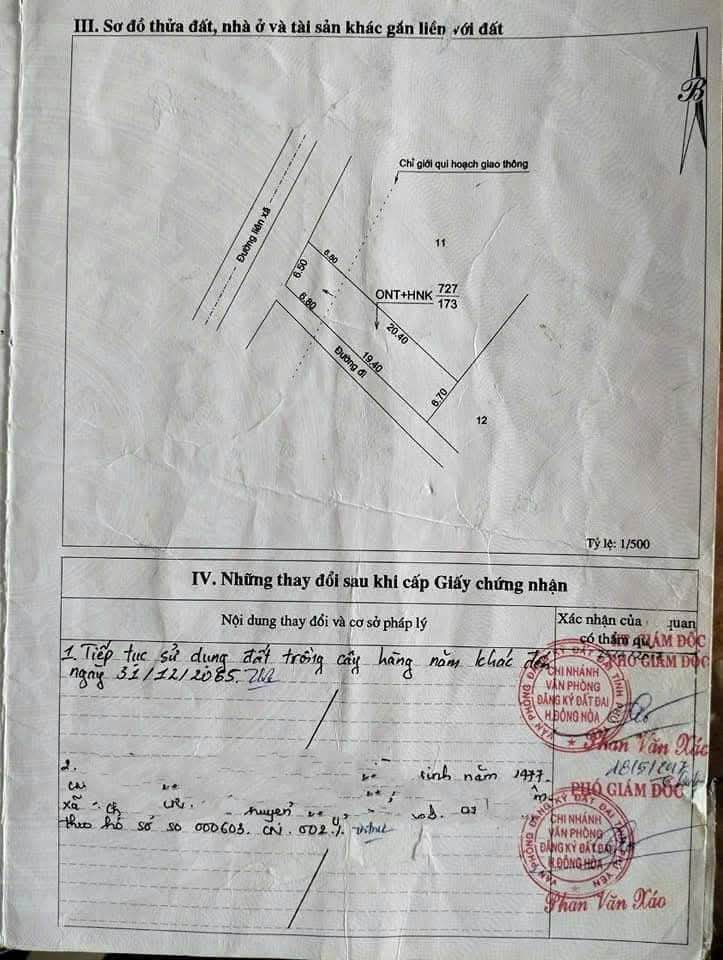 III. Sơ đồ thửa đất, nhà ở và tài sản khác gắn liền với đất
B
Chỉ giới qui hoạch giao thông
Đường liên xã
11
6.50
6.80
6.80
ONT+HNK 727
173
20.40
19.40
Đường đi
6.70
12
Tỷ lệ: 1/500
IV. Những thay đổi sau khi cấp Giấy chứng nhận
Nội dung thay đổi và cơ sở pháp lý
Xác nhận của quan
có thẩm qu
1. Tiếp tục sử dụng đất trồng cây hàng năm khác đến
ngày 31/12/2065.
GIÁM ĐỐC
PHÓ GIÁM ĐỐC
CHI NHÁNH
VĂN PHÒNG
ĐĂNG KÝ ĐẤT ĐAI
H.ĐÔNG HÒA
Phan Văn Xáo
18/5/2017
2. sinh năm 1977.
xã huyện
theo hồ sơ số 000603. CN. 002
PHÓ GIÁM ĐỐC
VĂN PHÒNG ĐĂNG KÝ ĐẤT ĐAI TỈNH PHÚ YÊN
CHI NHÁNH
VĂN PHÒNG
ĐĂNG KÝ ĐẤT ĐAI
H.ĐÔNG HÒA
Phan Văn Xáo